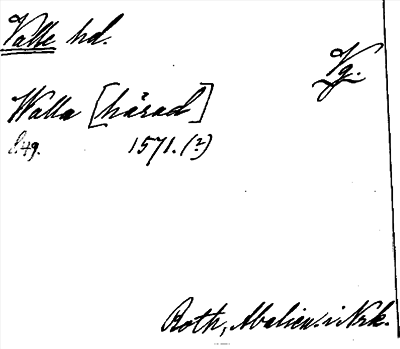 Valle hd.
Vg.
Walla [härad]
s. 49. 1571. (?)
Roth, i Nrk.